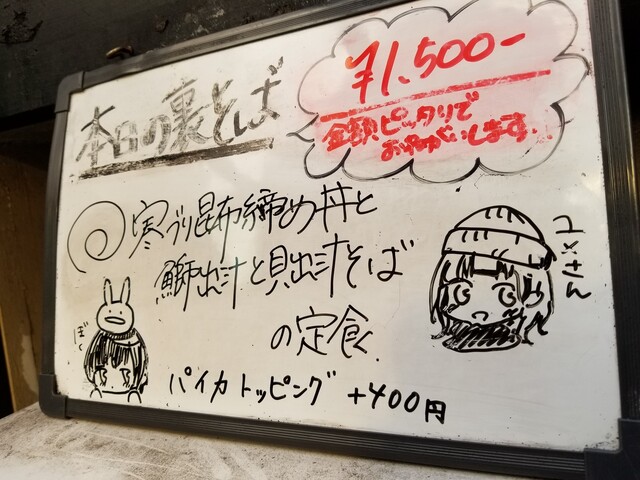 本日の裏そば
¥1,500-
金額ピッタリで
おねがいします.
寒ブリ昆布締め丼と
鰤出汁と貝出汁そば
の定食
パイカトッピング +400円
ぼく